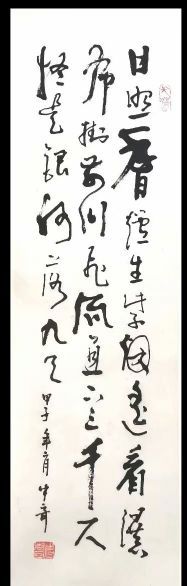 日照香爐生紫烟遥看瀑
布掛前川飛流直下三千尺
疑是銀河落九天 甲子年